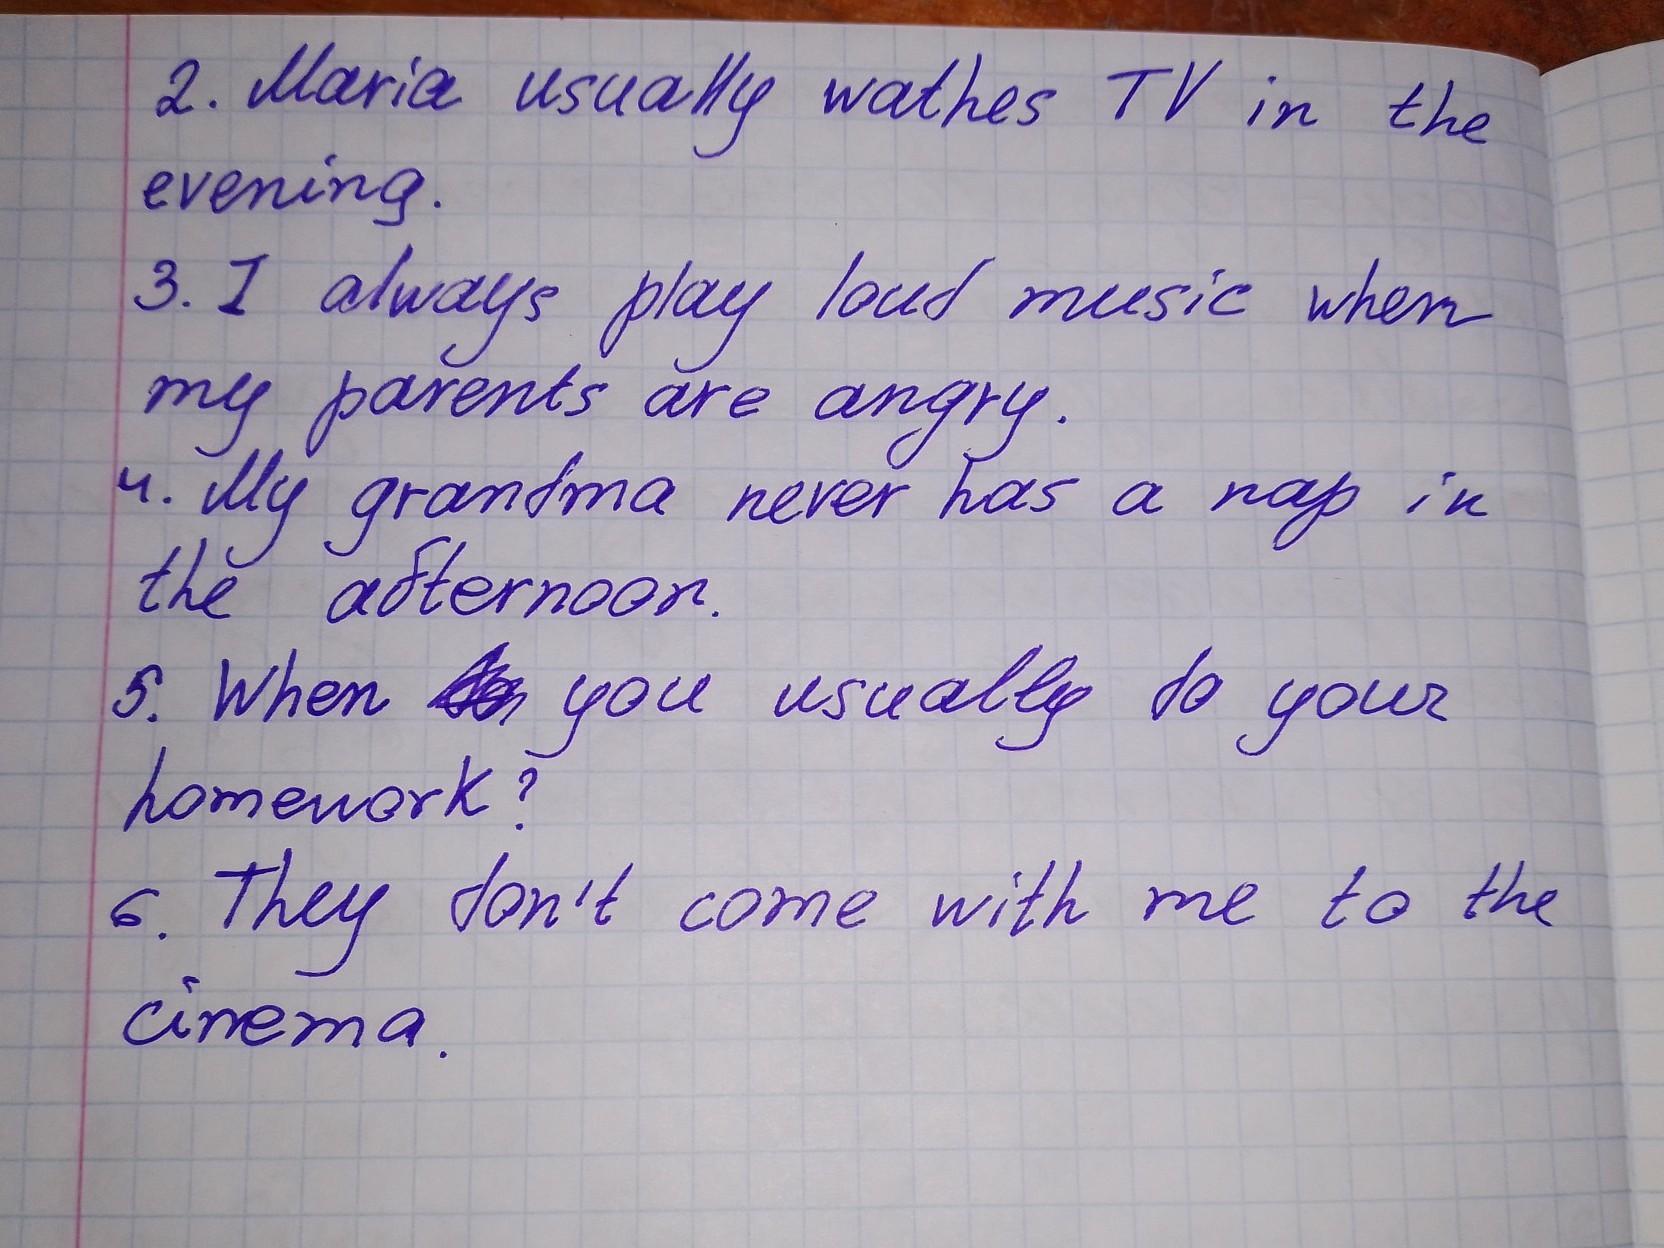 2. Maria usually wathes TV in the
evening.
3. I always play loud music when
my parents are angry.
4. My grandma never has a nap in
the afternoon.
5. When you usually do your
homework?
6. They don't come with me to the
cinema.